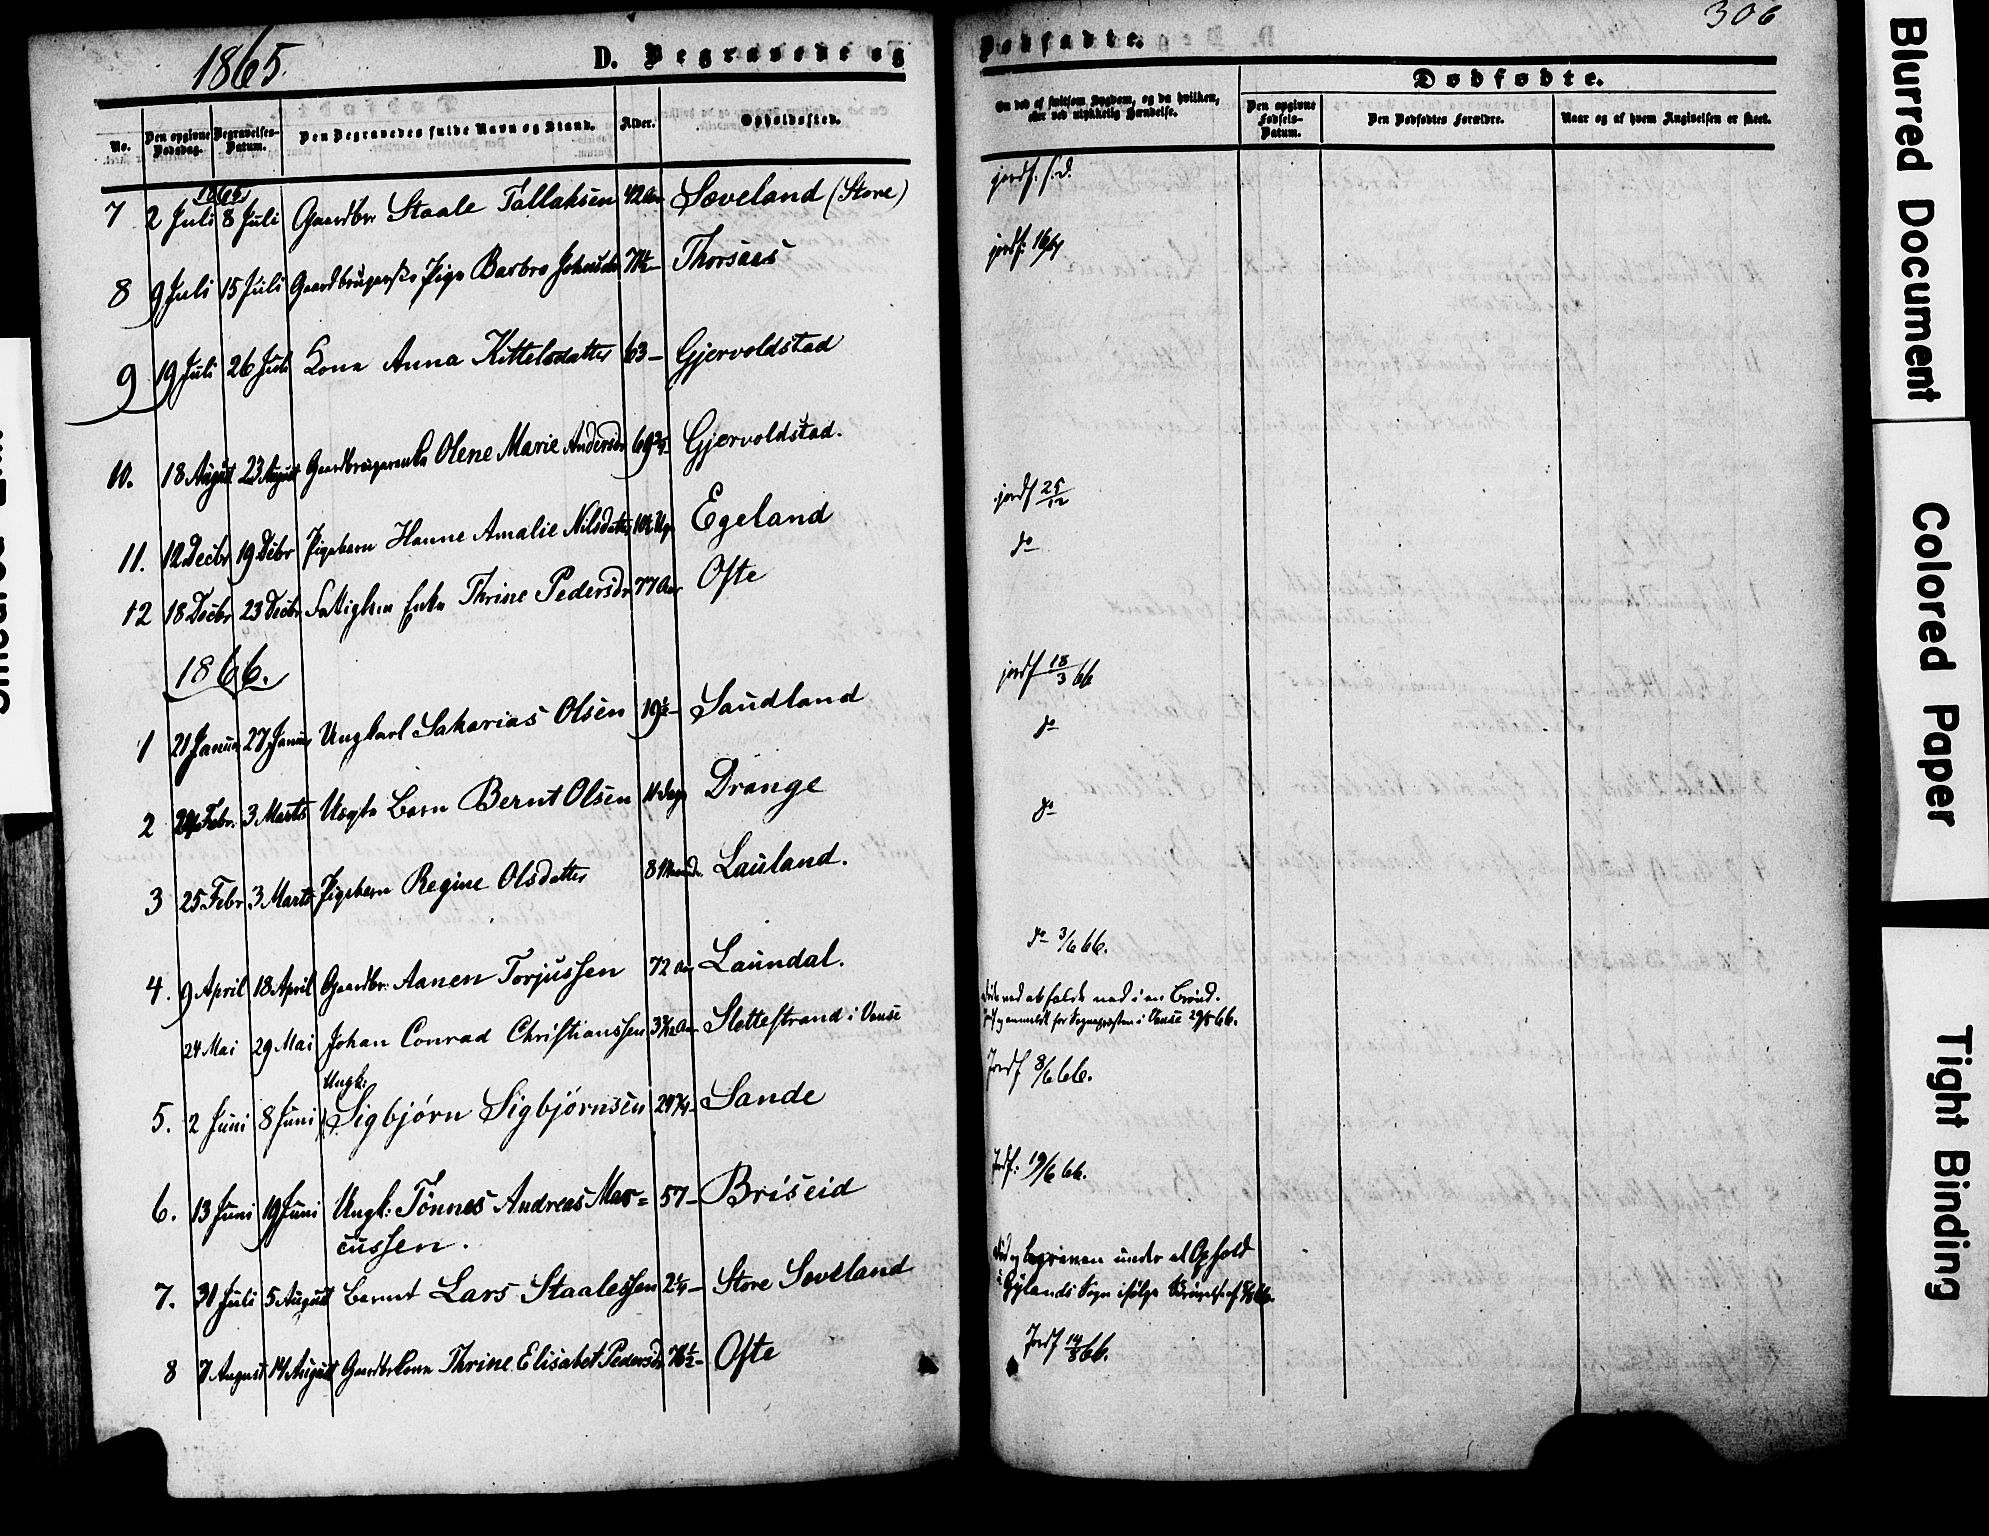 1865.
D. Begravede og
No.
Den opgivne Dødsdag.
Begravelses-Datum.
Den Begravedes fulde Navn og Stand.
Alder.
Opholdssted.
1865
7 2 Juli 8 Juli Gaardbr Staale Tallaksen 42 Aar Soveland (Store)
8 9 Juli 15 Juli Pige Barbro Thorsaas
9 19 Juli 26 Juli Kone Anna Kittelsdatter 63 – Gjervoldstad
10. 18 August 23 August Olene Marie Andersdr Gjervoldstad.
11. 12 Decbr 19 Dcbr Pigebarn Hanne Amalie Nilsdatter Egeland
12 18 Decbr 23 Decbr Enke Thrine Pedersdr 77 Aar Ofte
1866.
1 21 Januar 27 Januar Ungkarl Sakarias Olsen 19½ – Saudland
2 24 Febr. 3 Marts Barn Bernt Olsen 11 Dage Drange
3 25 Febr 3 Marts Pigebarn Regine Olsdatter 8 Lauland.
4. 9 April 18 April Gaardbr: Aanen Torjussen 72 Aar Laundal.
24 Mai 29 Mai Johan Conrad Christianssen Slettestrand i Vanse
Ungk:
5. 2 Juni 8 Juni Sigbjørn Sigbjørnsen Sande
6. 13 Juni 19 Juni Ungk: Tønnes Andreas Mar= 57 – Briseid
cussen.
7. 31 Juli 5 August Barnet Lars Staalessen 2¼ – Store Soveland
8 7 August 14 August Gaardbrkone Thrine Elisabet Pedersdr 76½ – Ofte
306
Dødfødte.
Om død af smitsom Sygdom, og da hvilken,
eller ved ulykkelig Hændelse.
Dødfødte.
Den opgivne Fødsels-Datum.
Den Dødfødtes Forældre.
Naar og af hvem Angivelsen er skeet.
jordf. s.d.
jordf: 16/7
jordf 25/12
do
jordf 18/3 66
do
do
do 3/6 66.
ved at falde ned i en Brønd.
anmeldt for Sognepræsten i Vanse 29/5 66.
Jordf 8/6 66.
Jordf: 19/6 66.
Død og begraven under et Ophold
i Gylands Sogn ifølge
Jordf 14/8 66.
Blurred Document
Colored Paper
Tight Binding